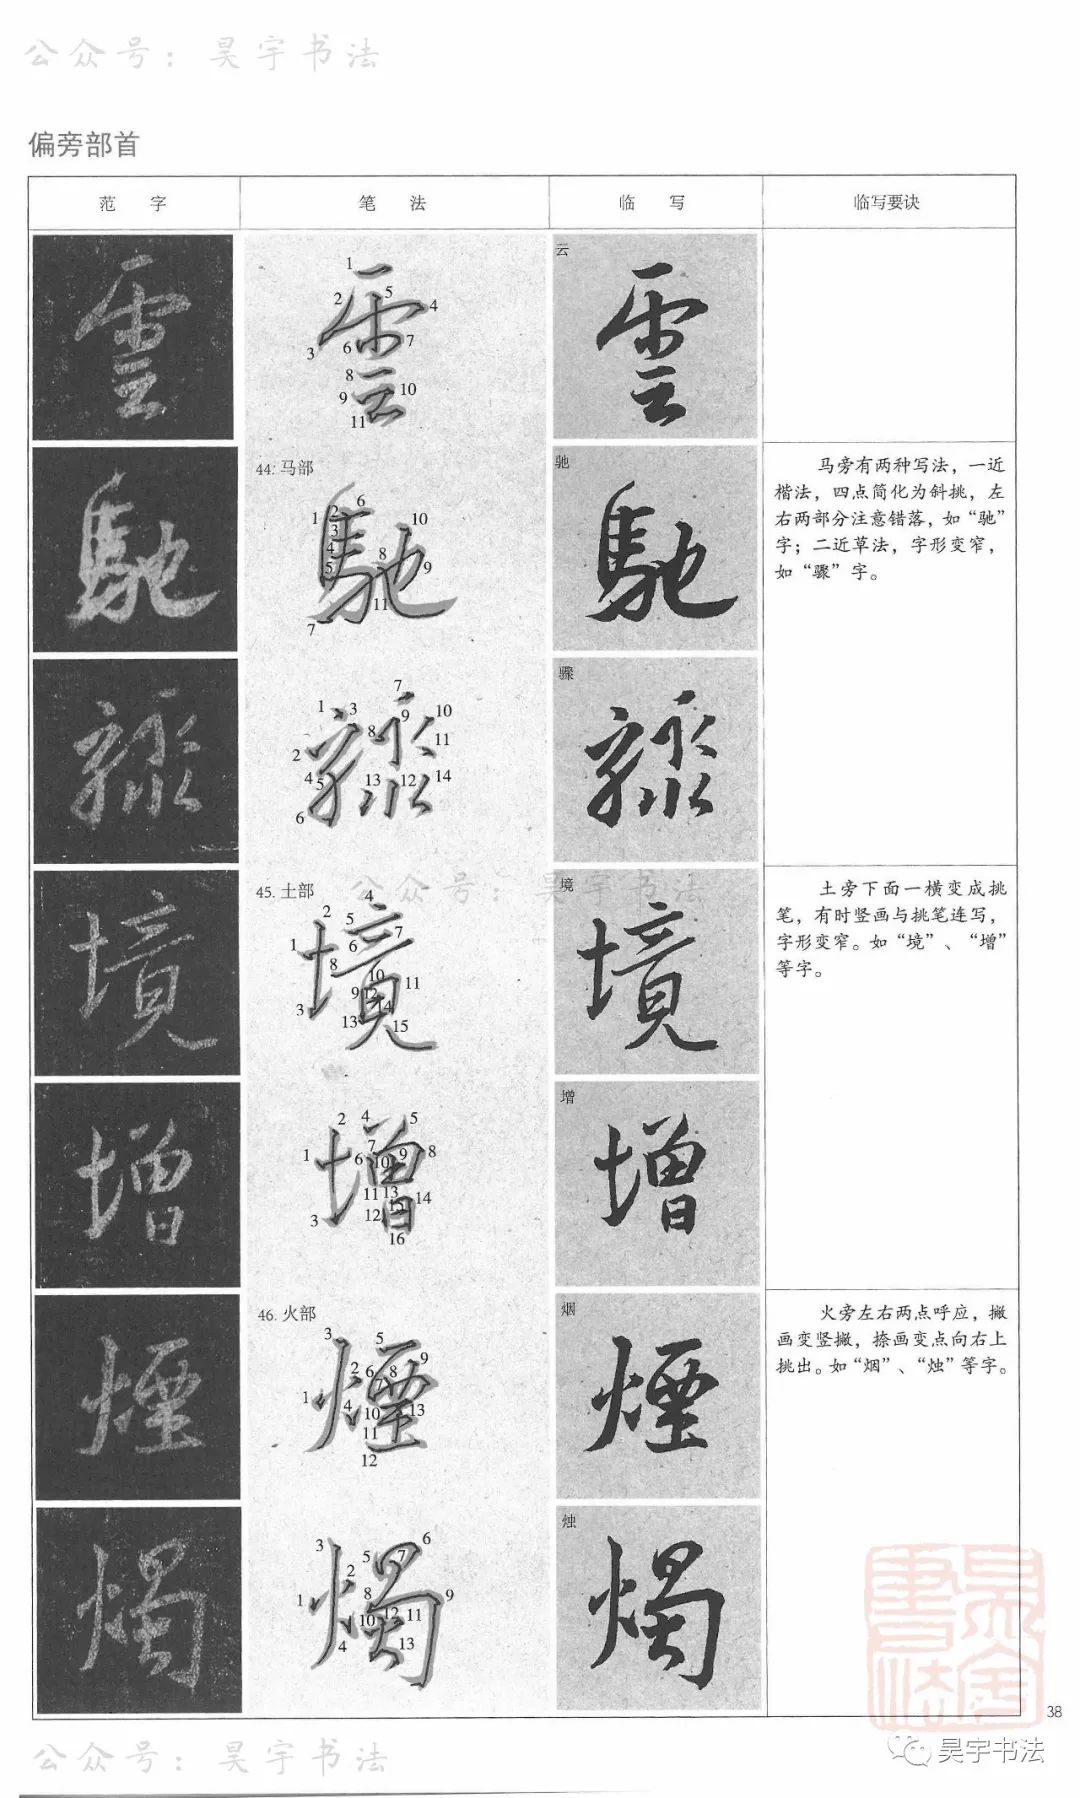 公众号：昊宇书法
偏旁部首
范 字
笔 法
临 写
临写要诀
雲
1
2
5
4
3
6
7
8
9
10
11
云
雲
馳
44. 马部
6
1
2
3
4
5
10
8
9
11
7
驰
馳
马旁有两种写法，一近
楷法，四点简化为斜挑，左
右两部分注意错落，如“驰”
字；二近草法，字形变窄，
如“骤”字。
7
1
3
9
10
8
11
2
4
5
13
12
14
6
骤
公众号：昊宇书法
境
45. 土部
4
2
5
7
1
6
8
10
11
9
12
14
3
13
15
境
境
土旁下面一横变成挑
笔，有时竖画与挑笔连写，
字形变窄。如“境”、“增”
等字。
增
2
4
5
7
1
6
10
9
8
11
13
14
15
3
12
16
增
增
煙
46. 火部
3
5
2
6
8
9
7
1
4
10
13
11
12
烟
煙
火旁左右两点呼应，撇
画变竖撇，捺画变点向右上
挑出。如“烟”、“烛”等字。
燭
3
6
5
7
2
1
8
9
10
12
11
4
13
烛
燭
38
昊宇书法
公众号：昊宇书法